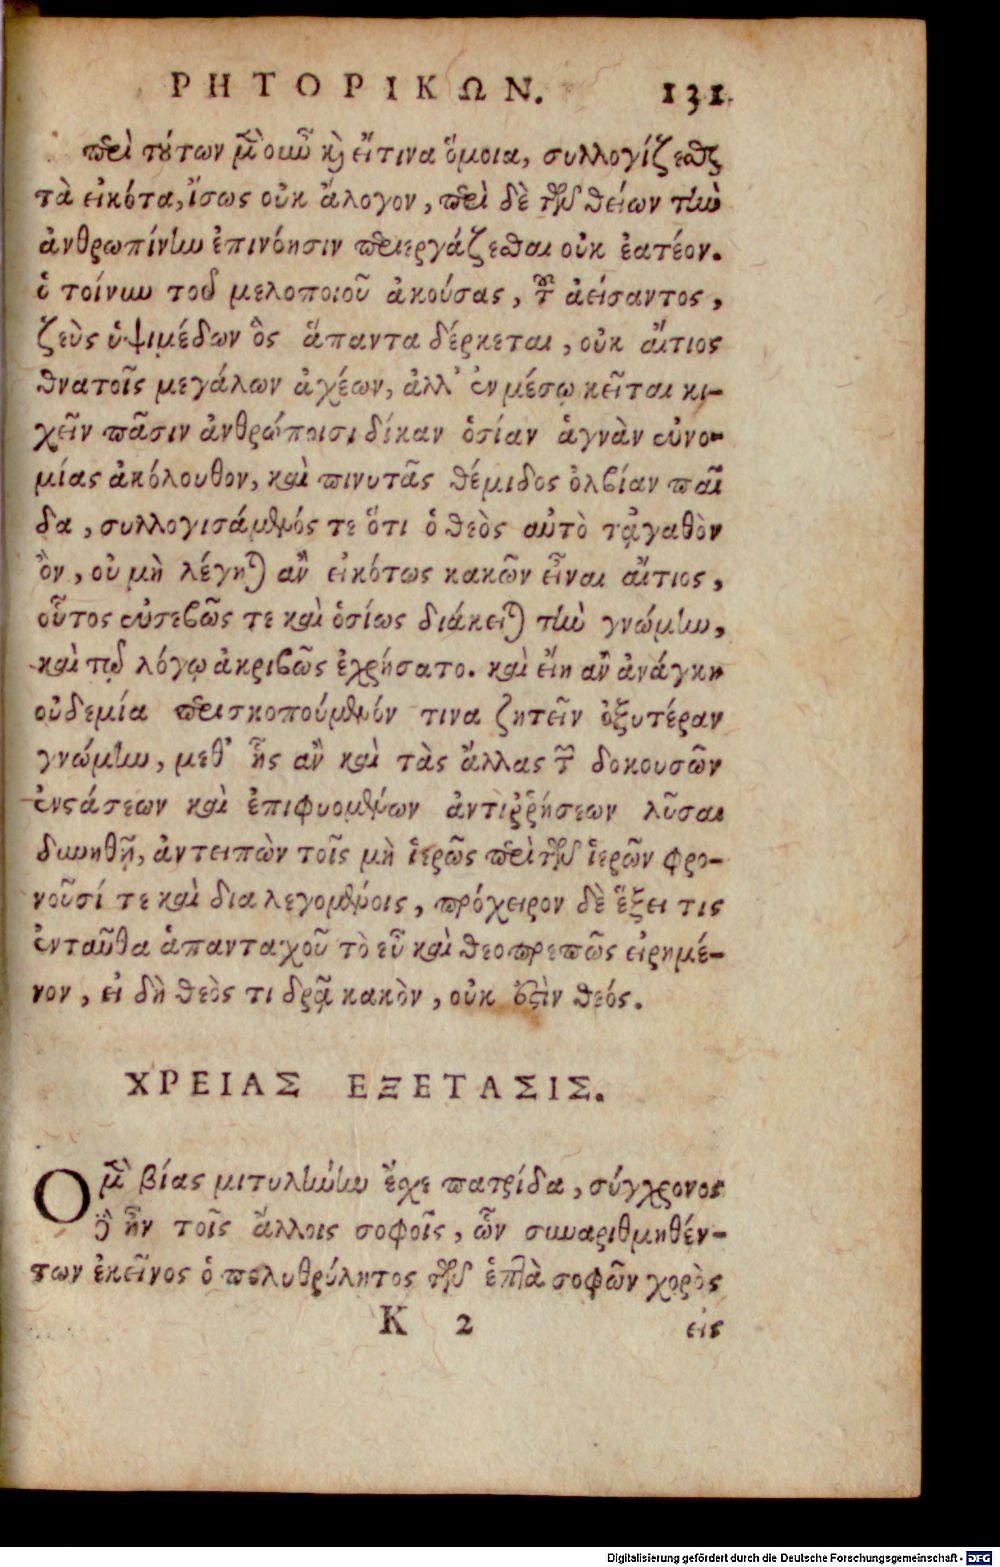 ΡΗΤΟΡΙΚΩΝ. 131
περὶ τούτων μὲν οὖν καὶ εἴτινα ὅμοια, συλλογίζεσθαι
τὰ εἰκότα, ἴσως οὐκ ἄλογον, περὶ δὲ τῶν θείων τὴν
ἀνθρωπίνην ἐπινόησιν περιεργάζεσθαι οὐκ ἐατέον.
ὁ τοίνυν τοῦ μελοποιοῦ ἀκούσας, τοῦ ἀείσαντος,
ζεὺς ὑψιμέδων ὃς ἅπαντα δέρκεται, οὐκ αἴτιος
θνατοῖς μεγάλων ἀχέων, ἀλλ' ἐν μέσῳ κεῖται κι-
χεῖν πᾶσιν ἀνθρώποισι δίκαν ὁσίαν ἁγνὰν εὐνο-
μίας ἀκόλουθον, καὶ πινυτᾶς θέμιδος ὀλβίαν παῖ
δα, συλλογισάμενός τε ὅτι ὁ θεὸς αὐτὸ τἀγαθὸν
ὂν, οὐ μὴ λέγηται ἂν εἰκότως κακῶν εἶναι αἴτιος,
οὗτος εὐσεβῶς τε καὶ ὁσίως διάκειται τὴν γνώμην,
καὶ τῷ λόγῳ ἀκριβῶς ἐχρήσατο. καὶ εἴη ἂν ἀνάγκη
οὐδεμία περισκοπούμενόν τινα ζητεῖν ὀξυτέραν
γνώμην, μεθ' ἧς ἂν καὶ τὰς ἄλλας τῶν δοκουσῶν
ἐνστάσεων καὶ ἐπιφυομένων ἀντιῤῥήσεων λῦσαι
δυνηθῇ, ἀντειπὼν τοῖς μὴ ἱερῶς περὶ τῶν ἱερῶν φρο-
νοῦσί τε καὶ διαλεγομένοις, πρόχειρον δὲ ἕξει τις
ἐνταῦθα ἁπανταχοῦ τὸ εὖ καὶ θεοπρεπῶς εἰρημέ-
νον, εἰ δὴ θεὸς τι δρᾷ κακὸν, οὐκ ἔστιν θεός.
ΧΡΕΙΑΣ ΕΞΕΤΑΣΙΣ.
Ο μὲν βίας μιτυλήνην ἔχε πατρίδα, σύγχρονος
δὲ ἦν τοῖς ἄλλοις σοφοῖς, ὧν συναριθμηθέν-
των ἐκεῖνος ὁ πολυθρύλητος τῶν ἑπτὰ σοφῶν χορὸς
K 2 εἰς
Digitalisierung gefördert durch die Deutsche Forschungsgemeinschaft - DFG